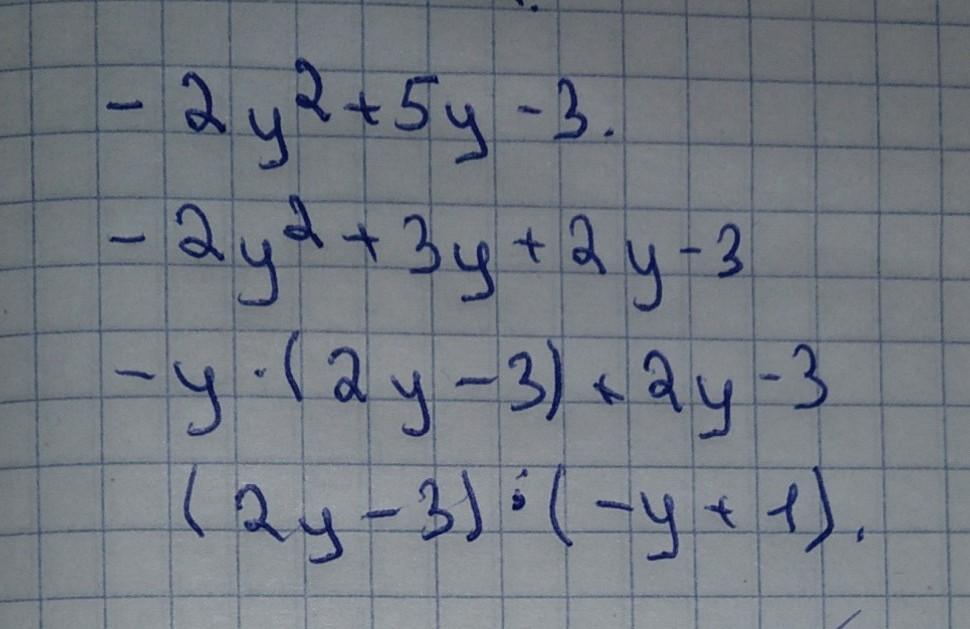 - 2y² + 5y - 3.
- 2y² + 3y + 2y - 3
- y · (2y - 3) + 2y - 3
(2y - 3) · (-y + 1).